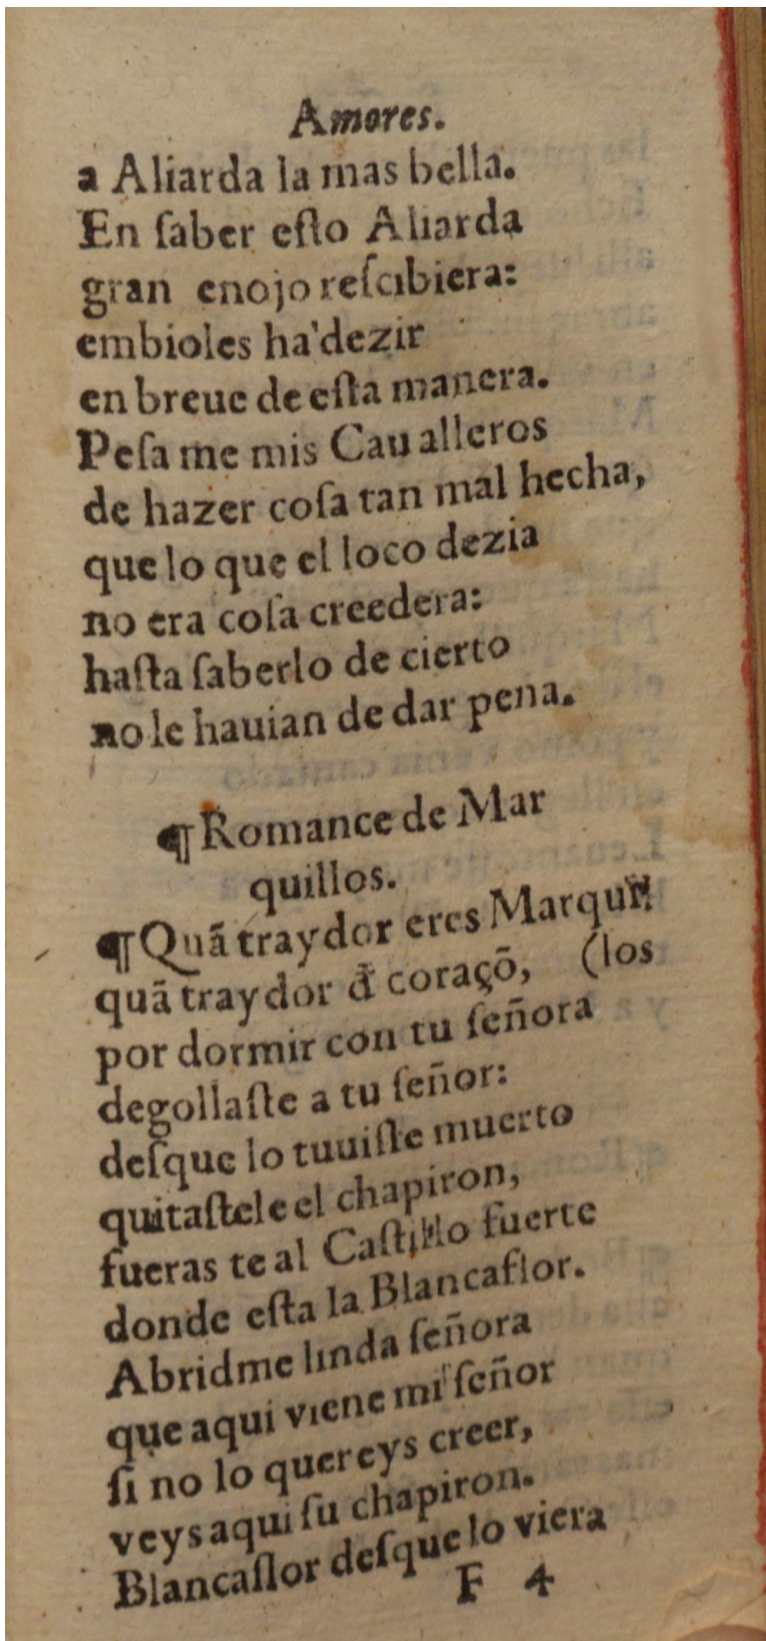 Amores.
a Aliarda la mas bella.
En ſaber eſto Aliarda
gran enojo reſcibiera:
embioles ha dezir
en breue de eſta manera.
Peſa me mis Caualleros
de hazer coſa tan mal hecha,
que lo que el loco dezia
no era coſa creedera:
haſta ſaberlo de cierto
no le hauian de dar pena.
¶ Romance de Mar
quillos.
¶ Quã traydor eres Marqui
quã traydor đ coraçõ, (los
por dormir con tu ſeñora
degollaſte a tu ſeñor:
deſque lo tuuiſte muerto
quitaſtele el chapiron,
fueras te al Caſtillo fuerte
donde eſta la Blancaflor.
Abridme linda ſeñora
que aqui viene mi ſeñor
ſi no lo quereys creer,
veys aqui ſu chapiron.
Blancaflor deſque lo viera
F 4